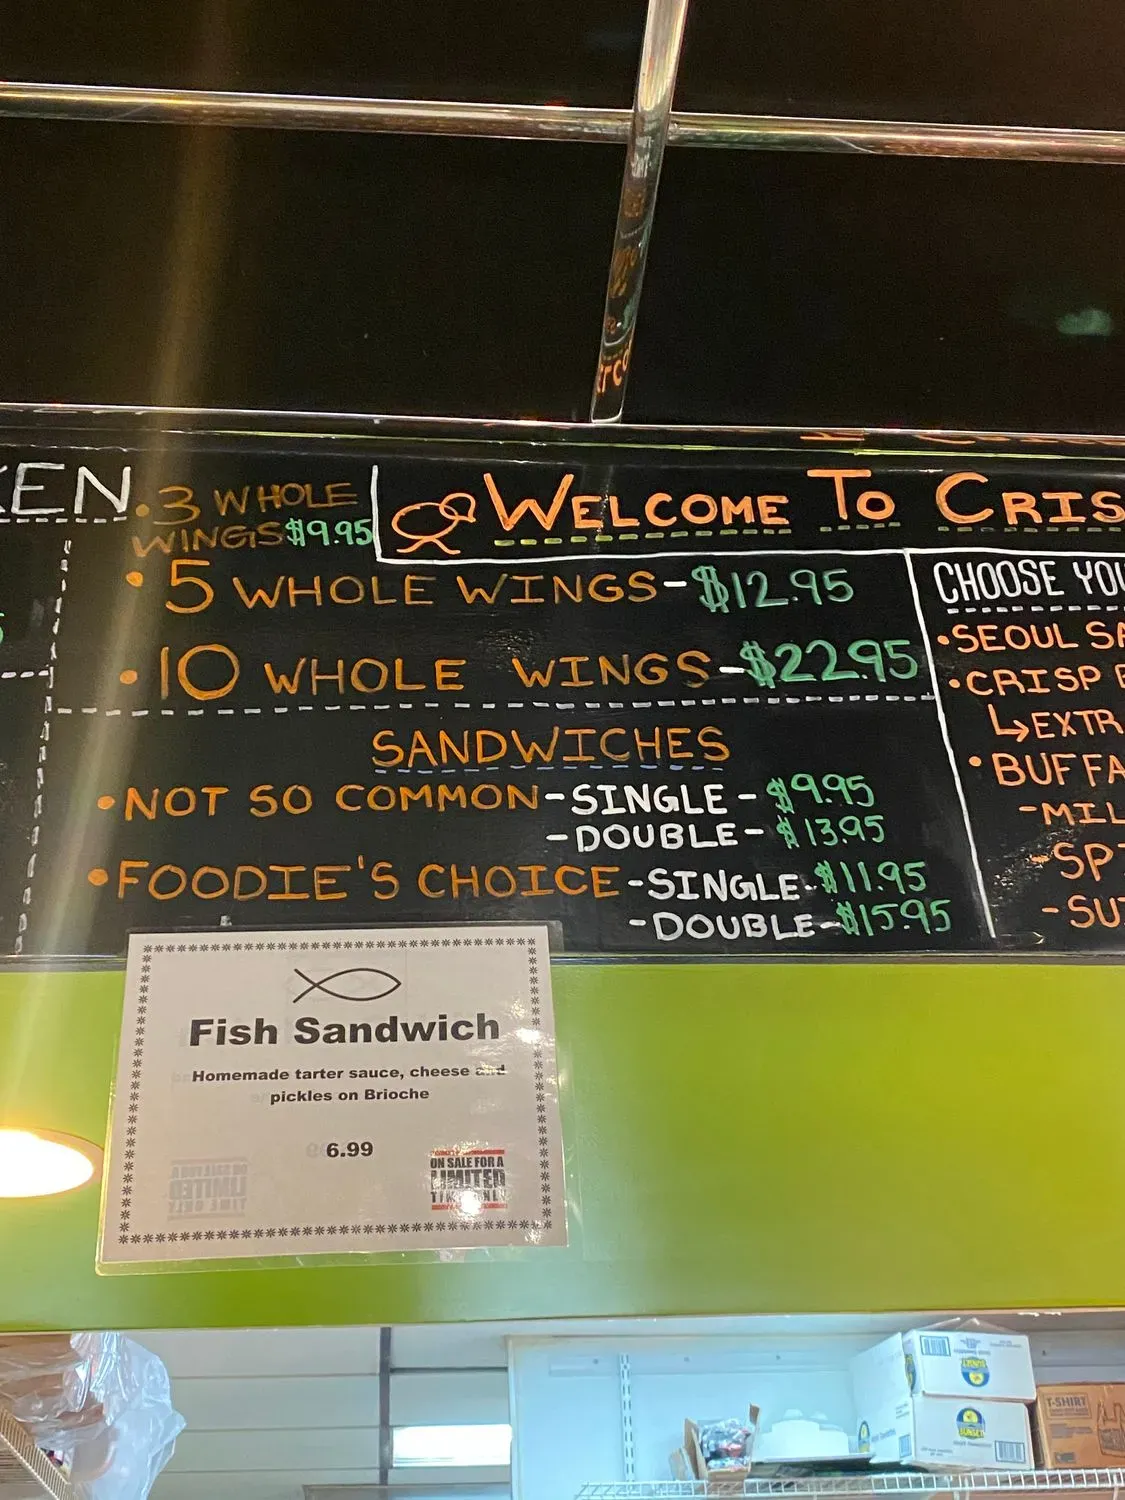 • 3 WHOLE
WINGS $9.95
• 5 WHOLE WINGS - $12.95
• 10 WHOLE WINGS - $22.95
SANDWICHES
• NOT SO COMMON - SINGLE - $9.95
- DOUBLE - $13.95
• FOODIE'S CHOICE - SINGLE - $11.95
- DOUBLE - $15.95
WELCOME TO CRIS
CHOOSE YOU
• SEOUL SA
• CRISP
↳ EXTR
• BUFFA
- MIL
- SP
- SU
Fish Sandwich
Homemade tarter sauce, cheese and
pickles on Brioche
6.99
ON SALE FOR A
LIMITED
TIME ONLY
SUNSET
SUNSET
T-SHIRT